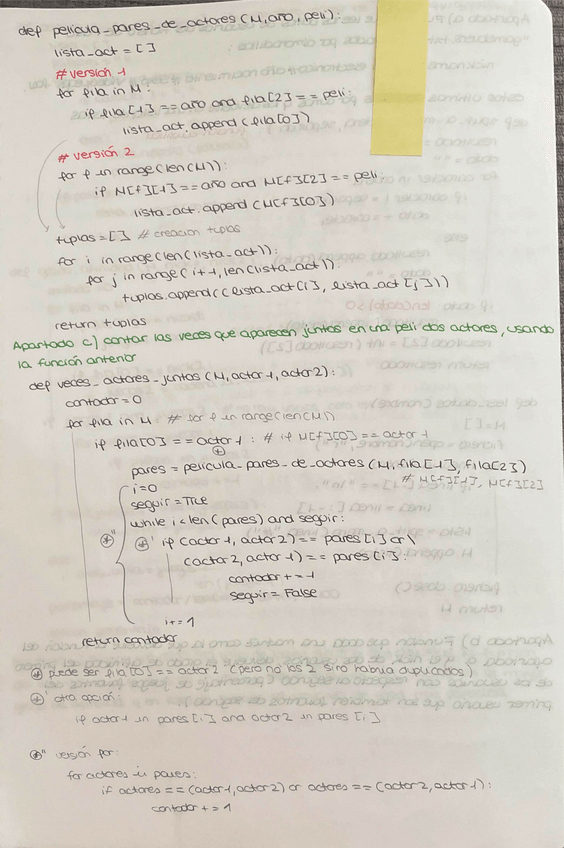 def pelicula_pares_de_actores (M, año, peli):
lista_act = [ ]
# versión 1
for fila in M:
if fila[1] == año and fila[2] == peli:
lista_act.append (fila[0])
# versión 2
for f in range(len(M)):
if M[f][1] == año and M[f][2] == peli:
lista_act.append (M[f][0])
tuplas = [ ] # creacion tuplas
for i in range(len(lista_act)):
for j in range(i+1, len(lista_act)):
tuplas.append((lista_act[i], lista_act[j]))
return tuplas
Apartado c) contar las veces que aparecen juntos en una peli dos actores, usando
la función anterior
def veces_actores_juntos (M, actor1, actor2):
contador = 0
for fila in M: # for f in range(len(M))
if fila[0] == actor1 : # if M[f][0] == actor1
pares = pelicula_pares_de_actores (M, fila[1], fila[2])
# M[f][1], M[f][2]
i=0
seguir = True
while i < len(pares) and seguir:
if (actor1, actor2) == pares[i] or \
(actor2, actor1) == pares[i]:
contador += 1
seguir = False
i += 1
return contador
puede ser fila[0] == actor2 (pero no los 2 sino habría duplicados)
otra opción:
if actor1 in pares[i] and actor2 in pares[i]
versión for:
for actores in pares:
if actores == (actor1, actor2) or actores == (actor2, actor1):
contador += 1